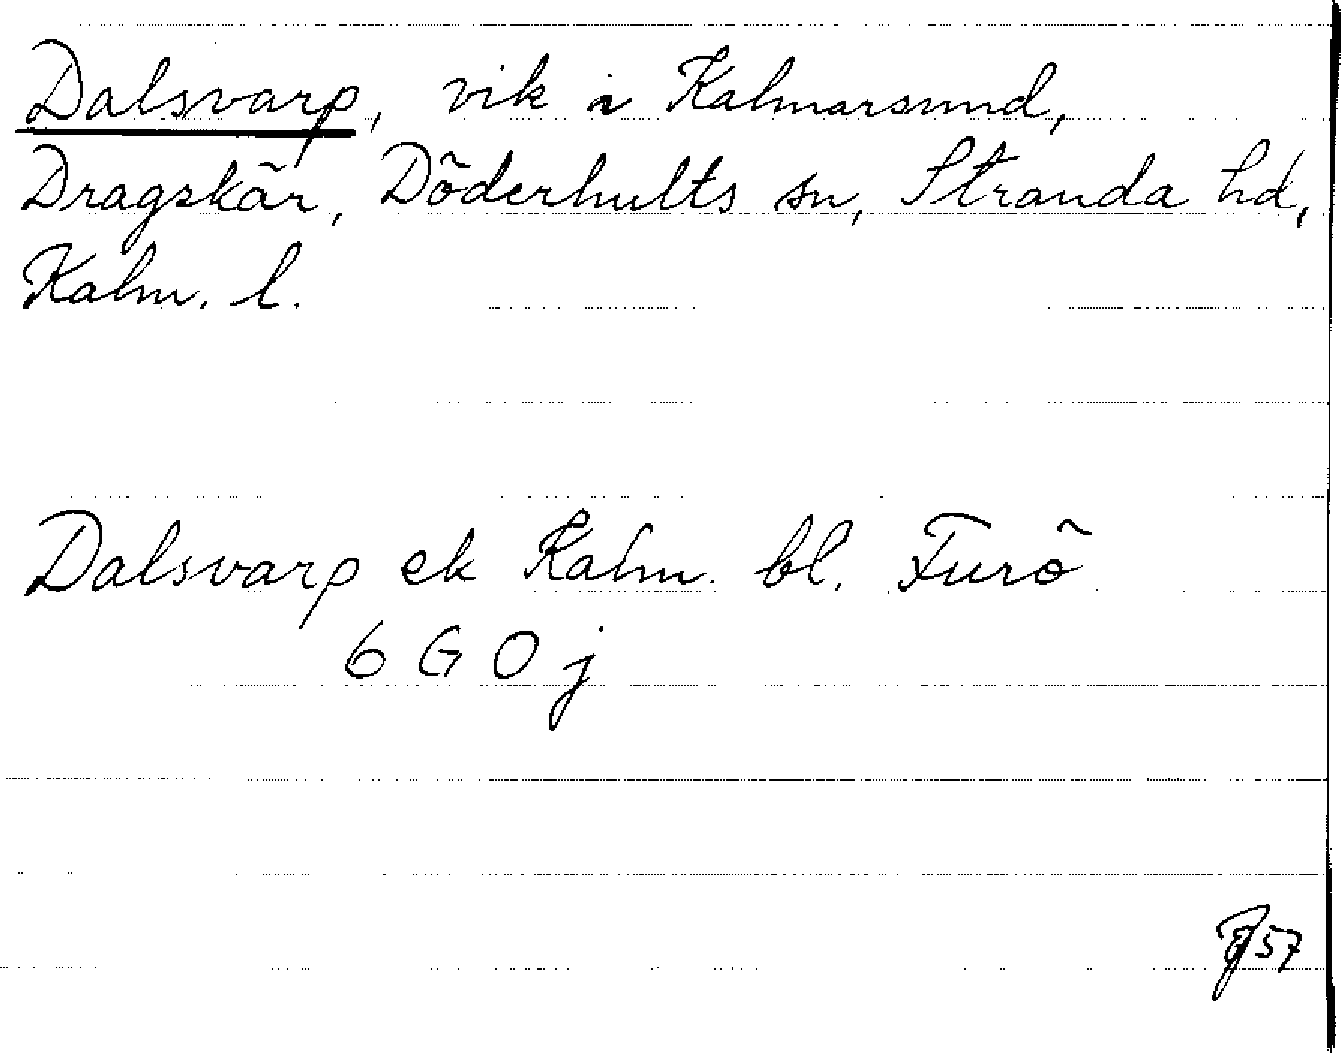 Dalsvarp, vik i Kalmarsund,
Dragskär, Döderhults sn, Stranda hd,
Kalm. l.
Dalsvarp ek Kalm. bl. Furö
6 G 0 j
57